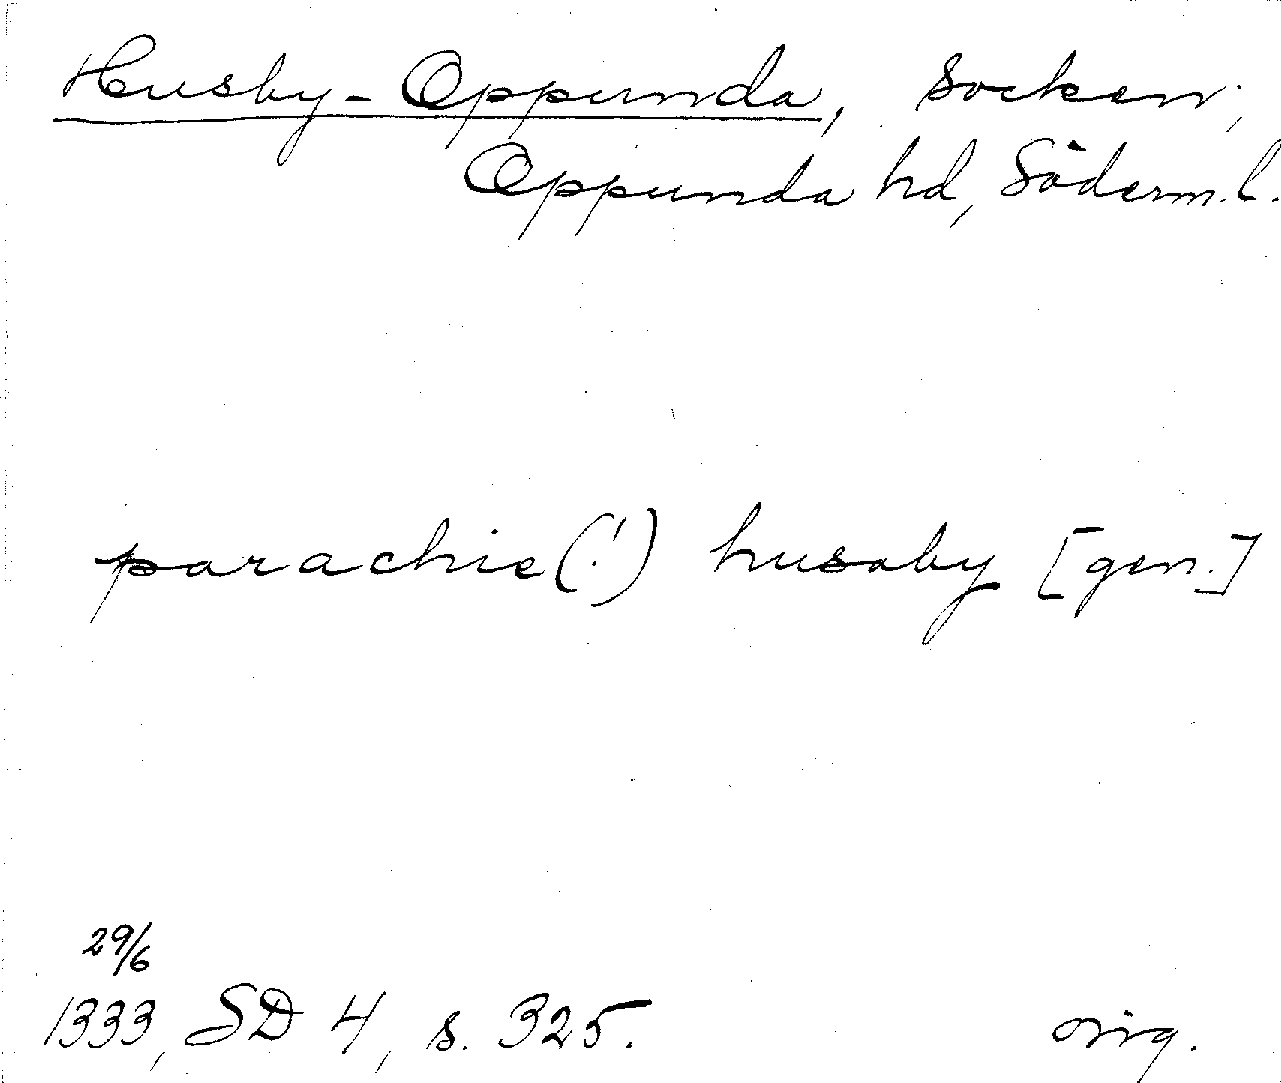 Husby-Oppunda, socken,
Oppunda hd, Söderm.l.
parachie(!) husaby [gen.]
29/6
1333, SD 4, s. 325. orig.